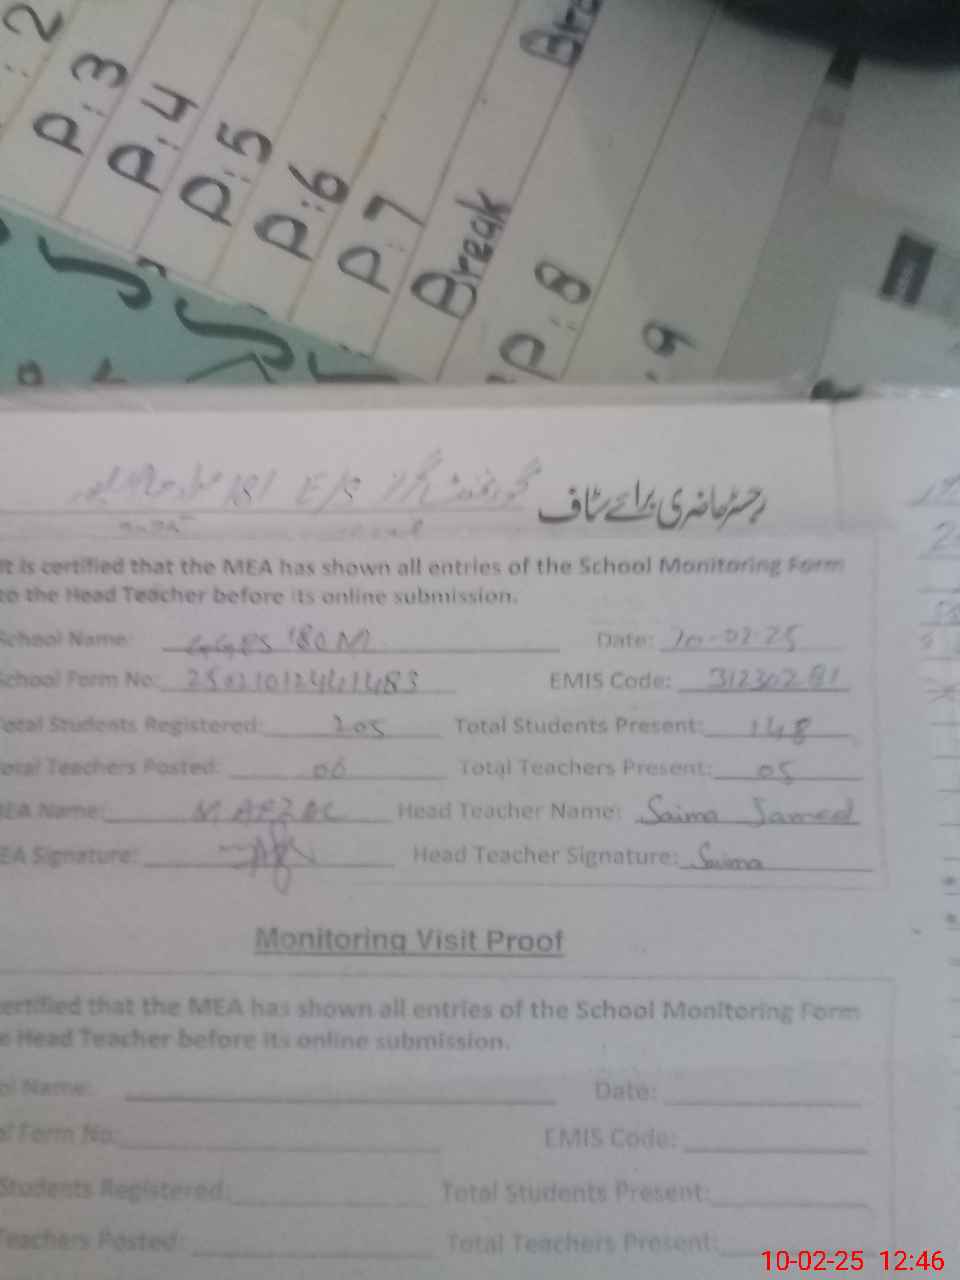 2
P:3
P:4
P:5
P:6
P:7
Break
P:8
9
رجسٹر حاضری برائے سٹاف گورنمنٹ گرلز
It is certified that the MEA has shown all entries of the School Monitoring Form
to the Head Teacher before its online submission.
School Name: GGPS 180 M Date: 10-02-25
School Form No: EMIS Code: 31230281
Total Students Registered: 205 Total Students Present: 148
Total Teachers Posted: 06 Total Teachers Present: 05
MEA Name: Head Teacher Name: Saima Jameel
MEA Signature: Head Teacher Signature: Saima
Monitoring Visit Proof
certified that the MEA has shown all entries of the School Monitoring Form
e Head Teacher before its online submission.
ol Name: Date:
l Form No: EMIS Code:
Students Registered: Total Students Present:
Teachers Posted: Total Teachers Present:
10-02-25 12:46